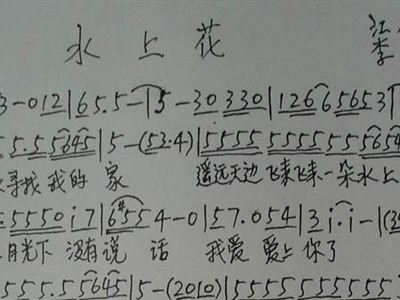 水上花
3-012|65.5-|5-30330|126665653|
5.5.5645|5-(53.4)|5555 5555 5556545
寻找我的家 遥远天边飞来飞来一朵水上
5550i7|6#554-0|57.054|3i.i-|(3
月光下没有说话 我爱爱上你了
555.55645|5-(2010)|5555555555